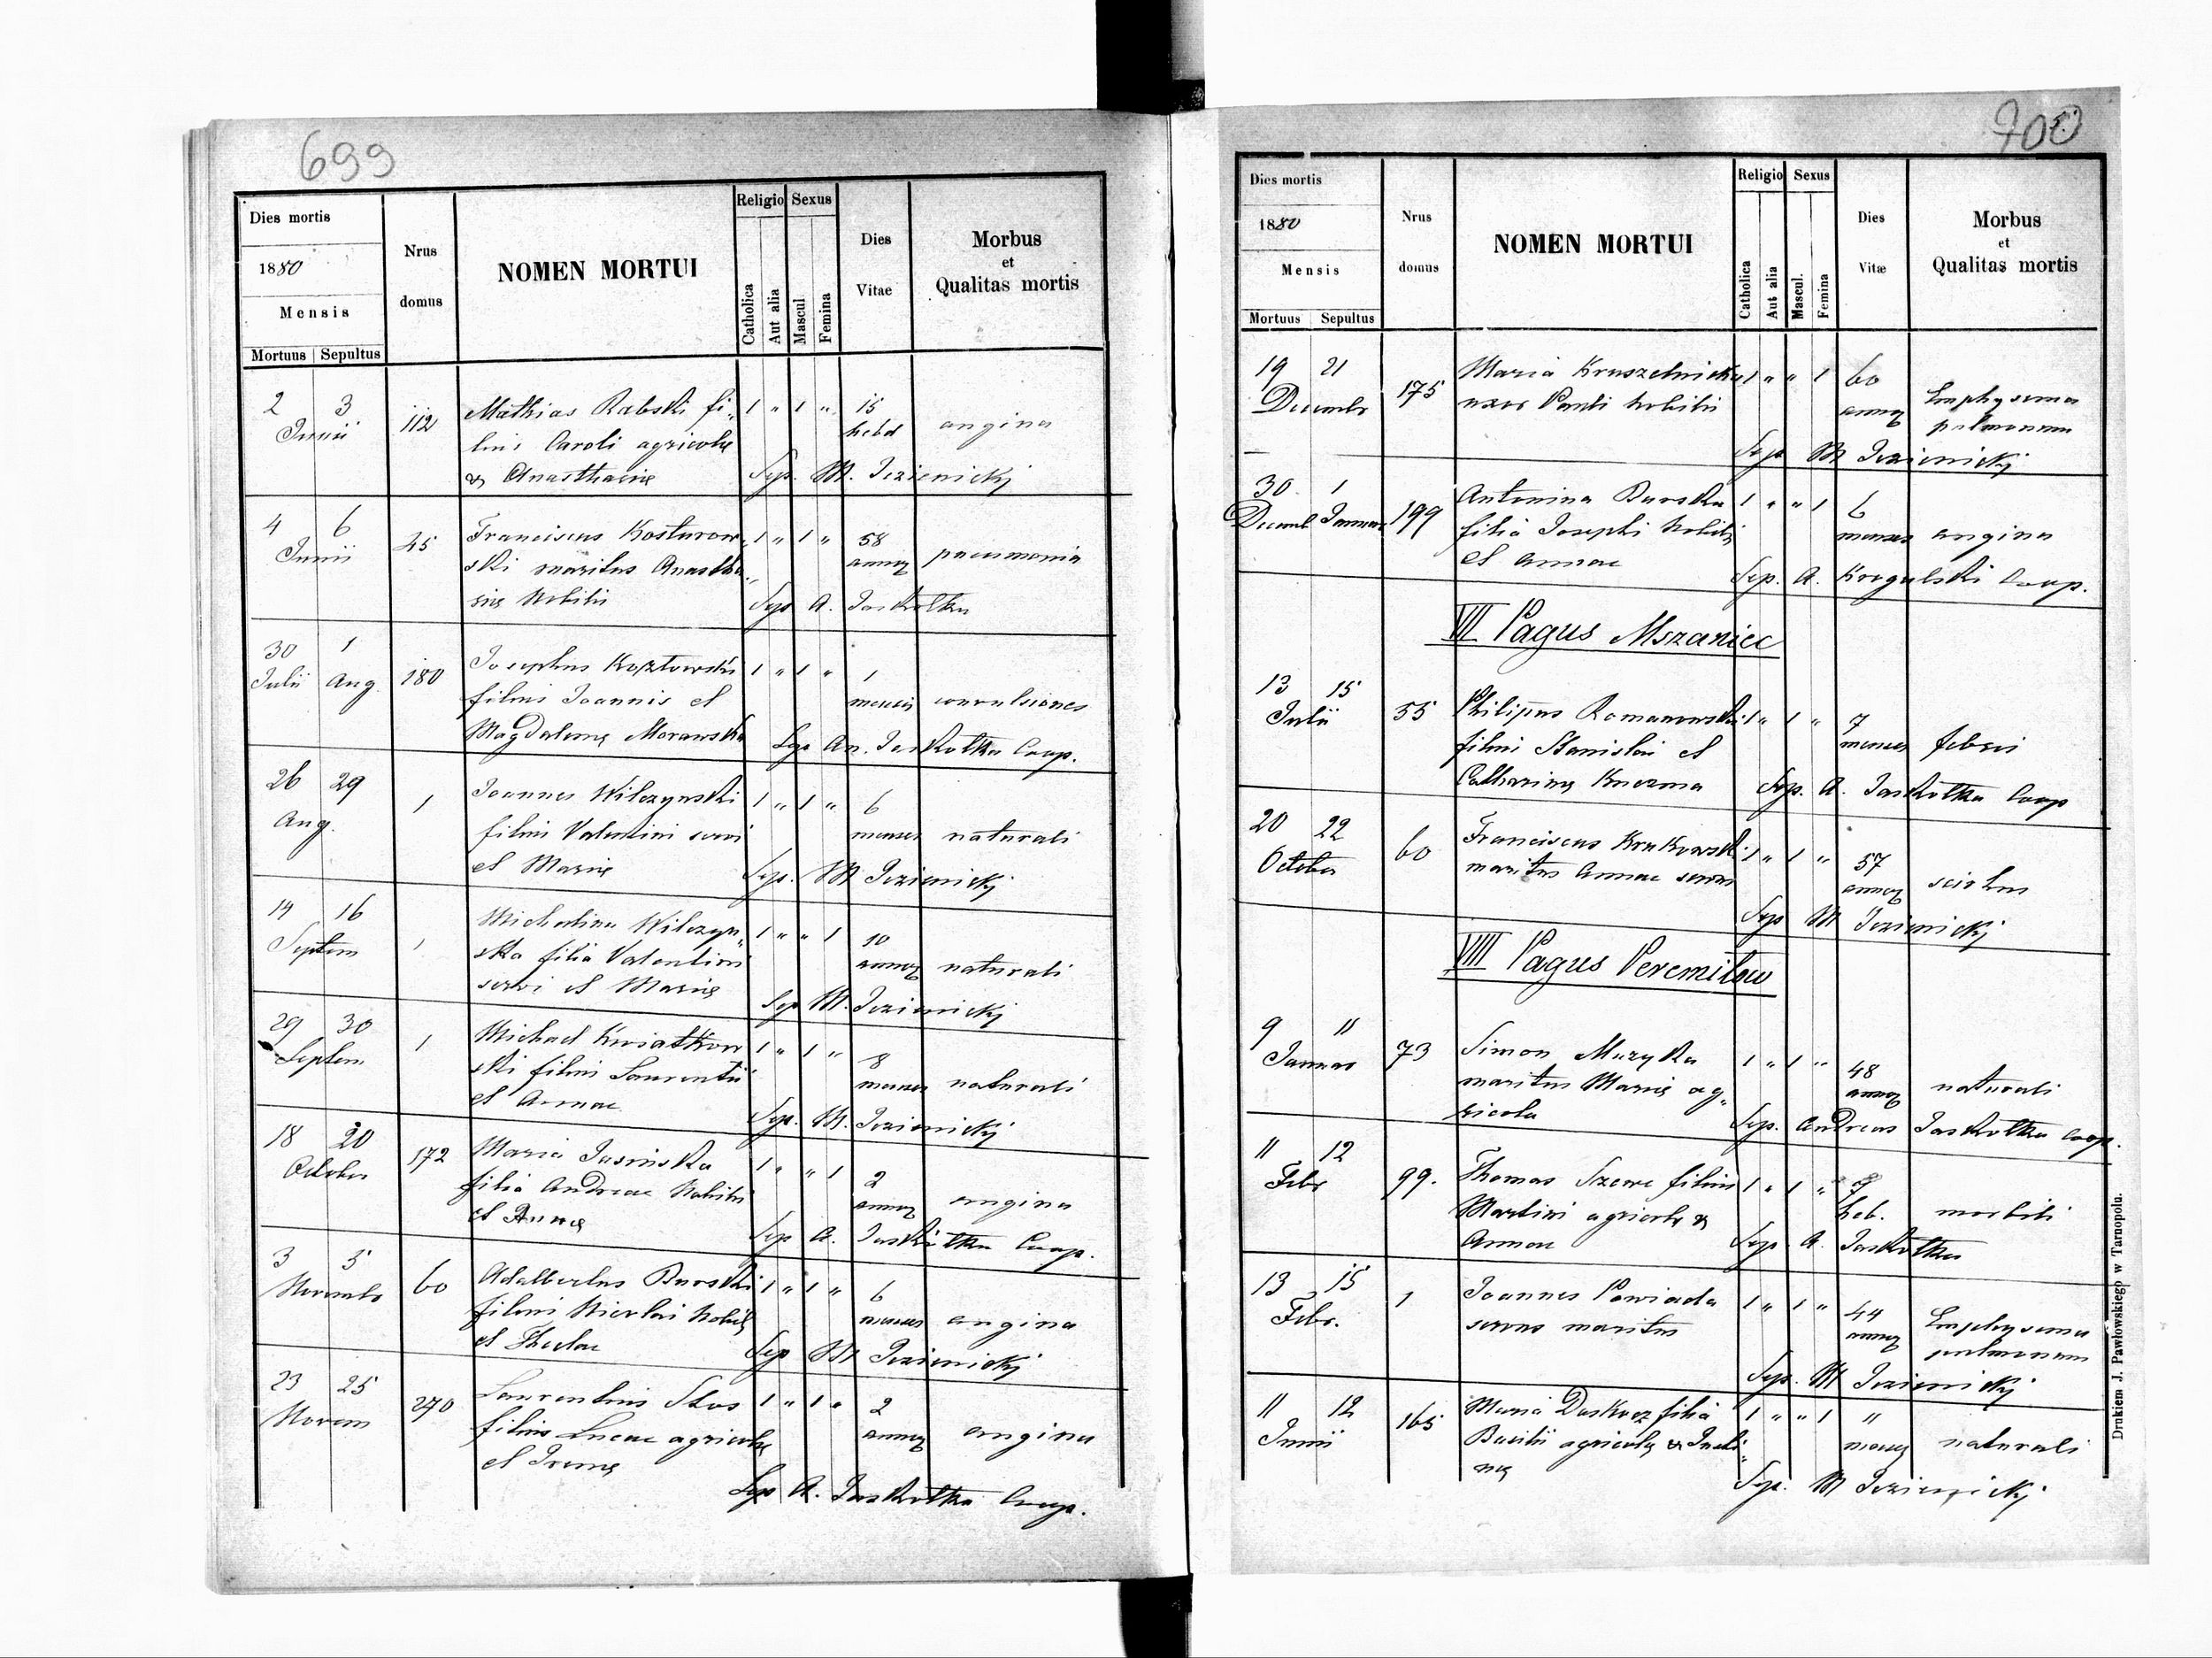 699
Dies mortis
1880
Mensis
Mortuus Sepultus
Nrus domus
NOMEN MORTUI
Religio Sexus
Catholica Aut alia Mascul Femina
Dies Vitae
Morbus et Qualitas mortis
2 3 112 Mathias Rabski fi- 1 " 1 " 15
Junii lius Caroli agricolę hebd angina
& Anasthasię Sep. M. Jezienickj
4 6 45 Franciscus Kosturow- 1 " 1 " 58
Junii ski maritus Anastha- annoų pneumonia
się Nobilis Sep A. Jaskółka
30 1 180 Josephus Kozłowski 1 " 1 " 1
Julii Aug. filius Joannis et mensis convulsiones
Magdalenę Morawska Sep An. Jaskółka Coop.
26 29 1 Joannes Wilczynski 1 " 1 " 6
Aug. filius Valentini servi menses naturali
et Marię Sep. M Jezienickj
14 16 Michalina Wilczyn- 1 " " 1 10
Septem ska filia Valentini naturali
servi et Marię Sep M. Jezienickj
29 30 1 Michael Kwiatkow 1 " 1 " 8
Septem ski filius Laurentii menses naturali
et Annae Sep. M. Jezienickj
18 20 172 Maria Jasinska 1 " " 1 2
October filia Andreae Nobilis angina
et Annę Sep A. Jaskółka Coop.
3 5 60 Adalbertus Burski 1 " 1 " 6
Novembr filius Nicolai Nobilis menses angina
et Theclae Sep M Jezienickj
23 25 270 Laurentius Stas 1 " 1 " 2
Novem filius Lucae agricolę angina
et Irenę
Sep A. Jaskółka Coop.
700
Dies mortis
1880
Mensis
Mortuus Sepultus
Nrus domus
NOMEN MORTUI
Religio Sexus
Catholica Aut alia Mascul. Femina
Dies Vitæ
Morbus et Qualitas mortis
19 21 175 Maria Kruszelnicka 1 " " 1 60
Decembr uxor Pauli Nobilis Emphysema
pulmonum
Sep M Jezienickj
30 1 199 Antonina Burska 1 " " 1 6
Decemb Januar filia Josephi Nobilis menses angina
et Annae Sep. A. Kregulski Coop.
VII Pagus Mszaniec
13 15 55 Philipus Romanowski 1 " 1 " 7
Julii filius Stanislai et menses febris
Catharinę Sep. A. Jaskółka Coop
20 22 60 Franciscus Krukowski 1 " 1 " 57
October maritus Annae servus
Sep M Jezienickj
VIII Pagus Peremilow
9 11 73 Simon Muzyka 1 " 1 " 48
Januar maritus Marię ag- naturali
ricola Sep. Andreas Jaskółka Coop.
11 12 99. Thomas Szewc filius 1 " 1 " 7
Febr Martini agricolę & heb. morbili
Annae Sep. A. Jaskółka
13 15 1 Joannes Powiada 1 " 1 " 44
Febr. servus maritus Emphysema
pulmonum
Sep. M Jezienickj
11 12 165 Maria filia 1 " " 1 "
Junii Basilii agricolę & naturali
Sep. M Jezienickj
Drukiem J. Pawłowskiego w Tarnopolu.